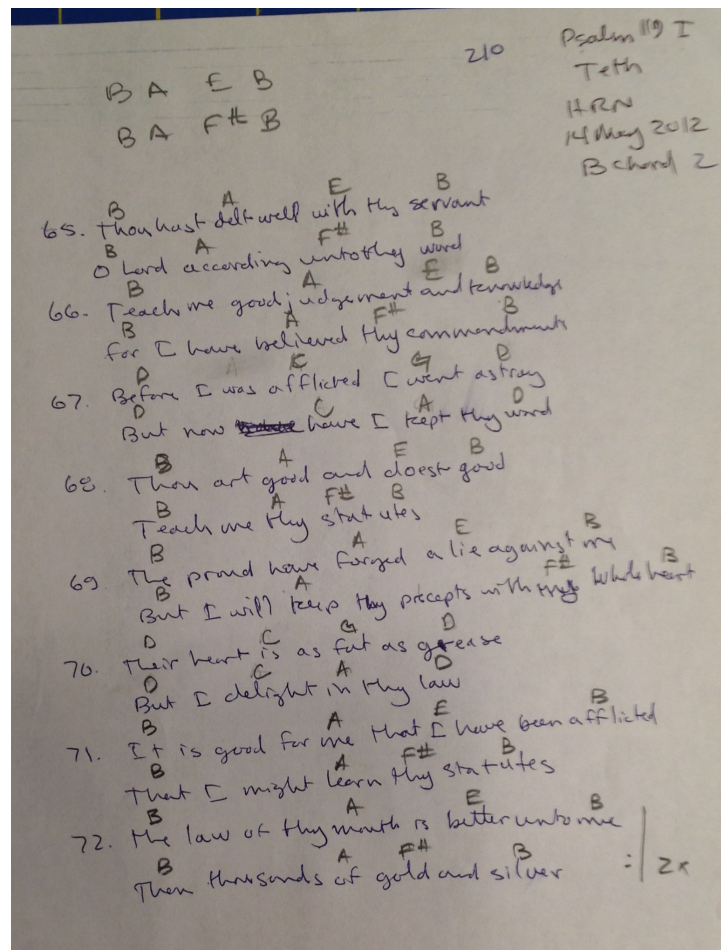 210
Psalm 119 I
Teth
HRN
14 May 2012
B chord 2
B A E B
B A F# B
B A E B
65. Thou hast delt well with thy servant
B A F# B
O Lord according unto thy word
B A E B
66. Teach me good judgement and knowledge
B A F# B
for I have believed thy commandments
D A C G D
67. Before I was afflicted I went astray
D C A D
But now have I kept thy word
B A E B
68. Thou art good and doest good
B A F# B
Teach me thy statutes
B A E B
69 The proud have forged a lie against me
B A F# B
But I will keep thy precepts with my whole heart
D C G D
70. Their heart is as fat as grease
D C A D
But I delight in thy law
B A E B
71. It is good for me that I have been afflicted
B A F# B
That I might learn thy statutes
B A E B
72. The law of thy mouth is better unto me
B A F# B
Then thousands of gold and silver :| 2x